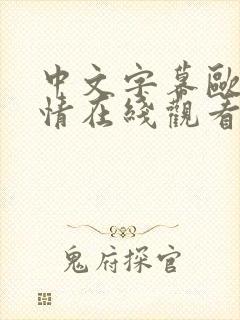 中文字幕歐
情在綫觀看
鬼府探官